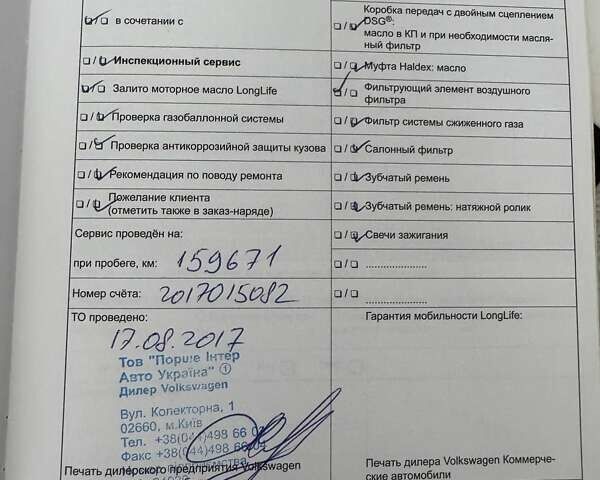 в сочетании с
Инспекционный сервис
Залито моторное масло LongLife
Проверка газобаллонной системы
Проверка антикоррозийной защиты кузова
Рекомендация по поводу ремонта
Пожелание клиента
(отметить также в заказ-наряде)
Сервис проведён на:
при пробеге, км: 159671
Номер счёта: 2017015082
ТО проведено:
17.08.2017
Тов "Порше Інтер
Авто Україна" 1
Дилер Volkswagen
Вул. Колекторна, 1
02660, м.Київ
Тел. +38(044)498 66 0
Факс +38(044)498 66 04
Печать дилерского предприятия Volkswagen
Коробка передач с двойным сцеплением
DSG®:
масло в КП и при необходимости масля-
ный фильтр
Муфта Haldex: масло
Фильтрующий элемент воздушного
фильтра
Фильтр системы сжиженного газа
Салонный фильтр
Зубчатый ремень
Зубчатый ремень: натяжной ролик
Свечи зажигания
Гарантия мобильности LongLife:
Печать дилера Volkswagen Коммерче-
ские автомобили